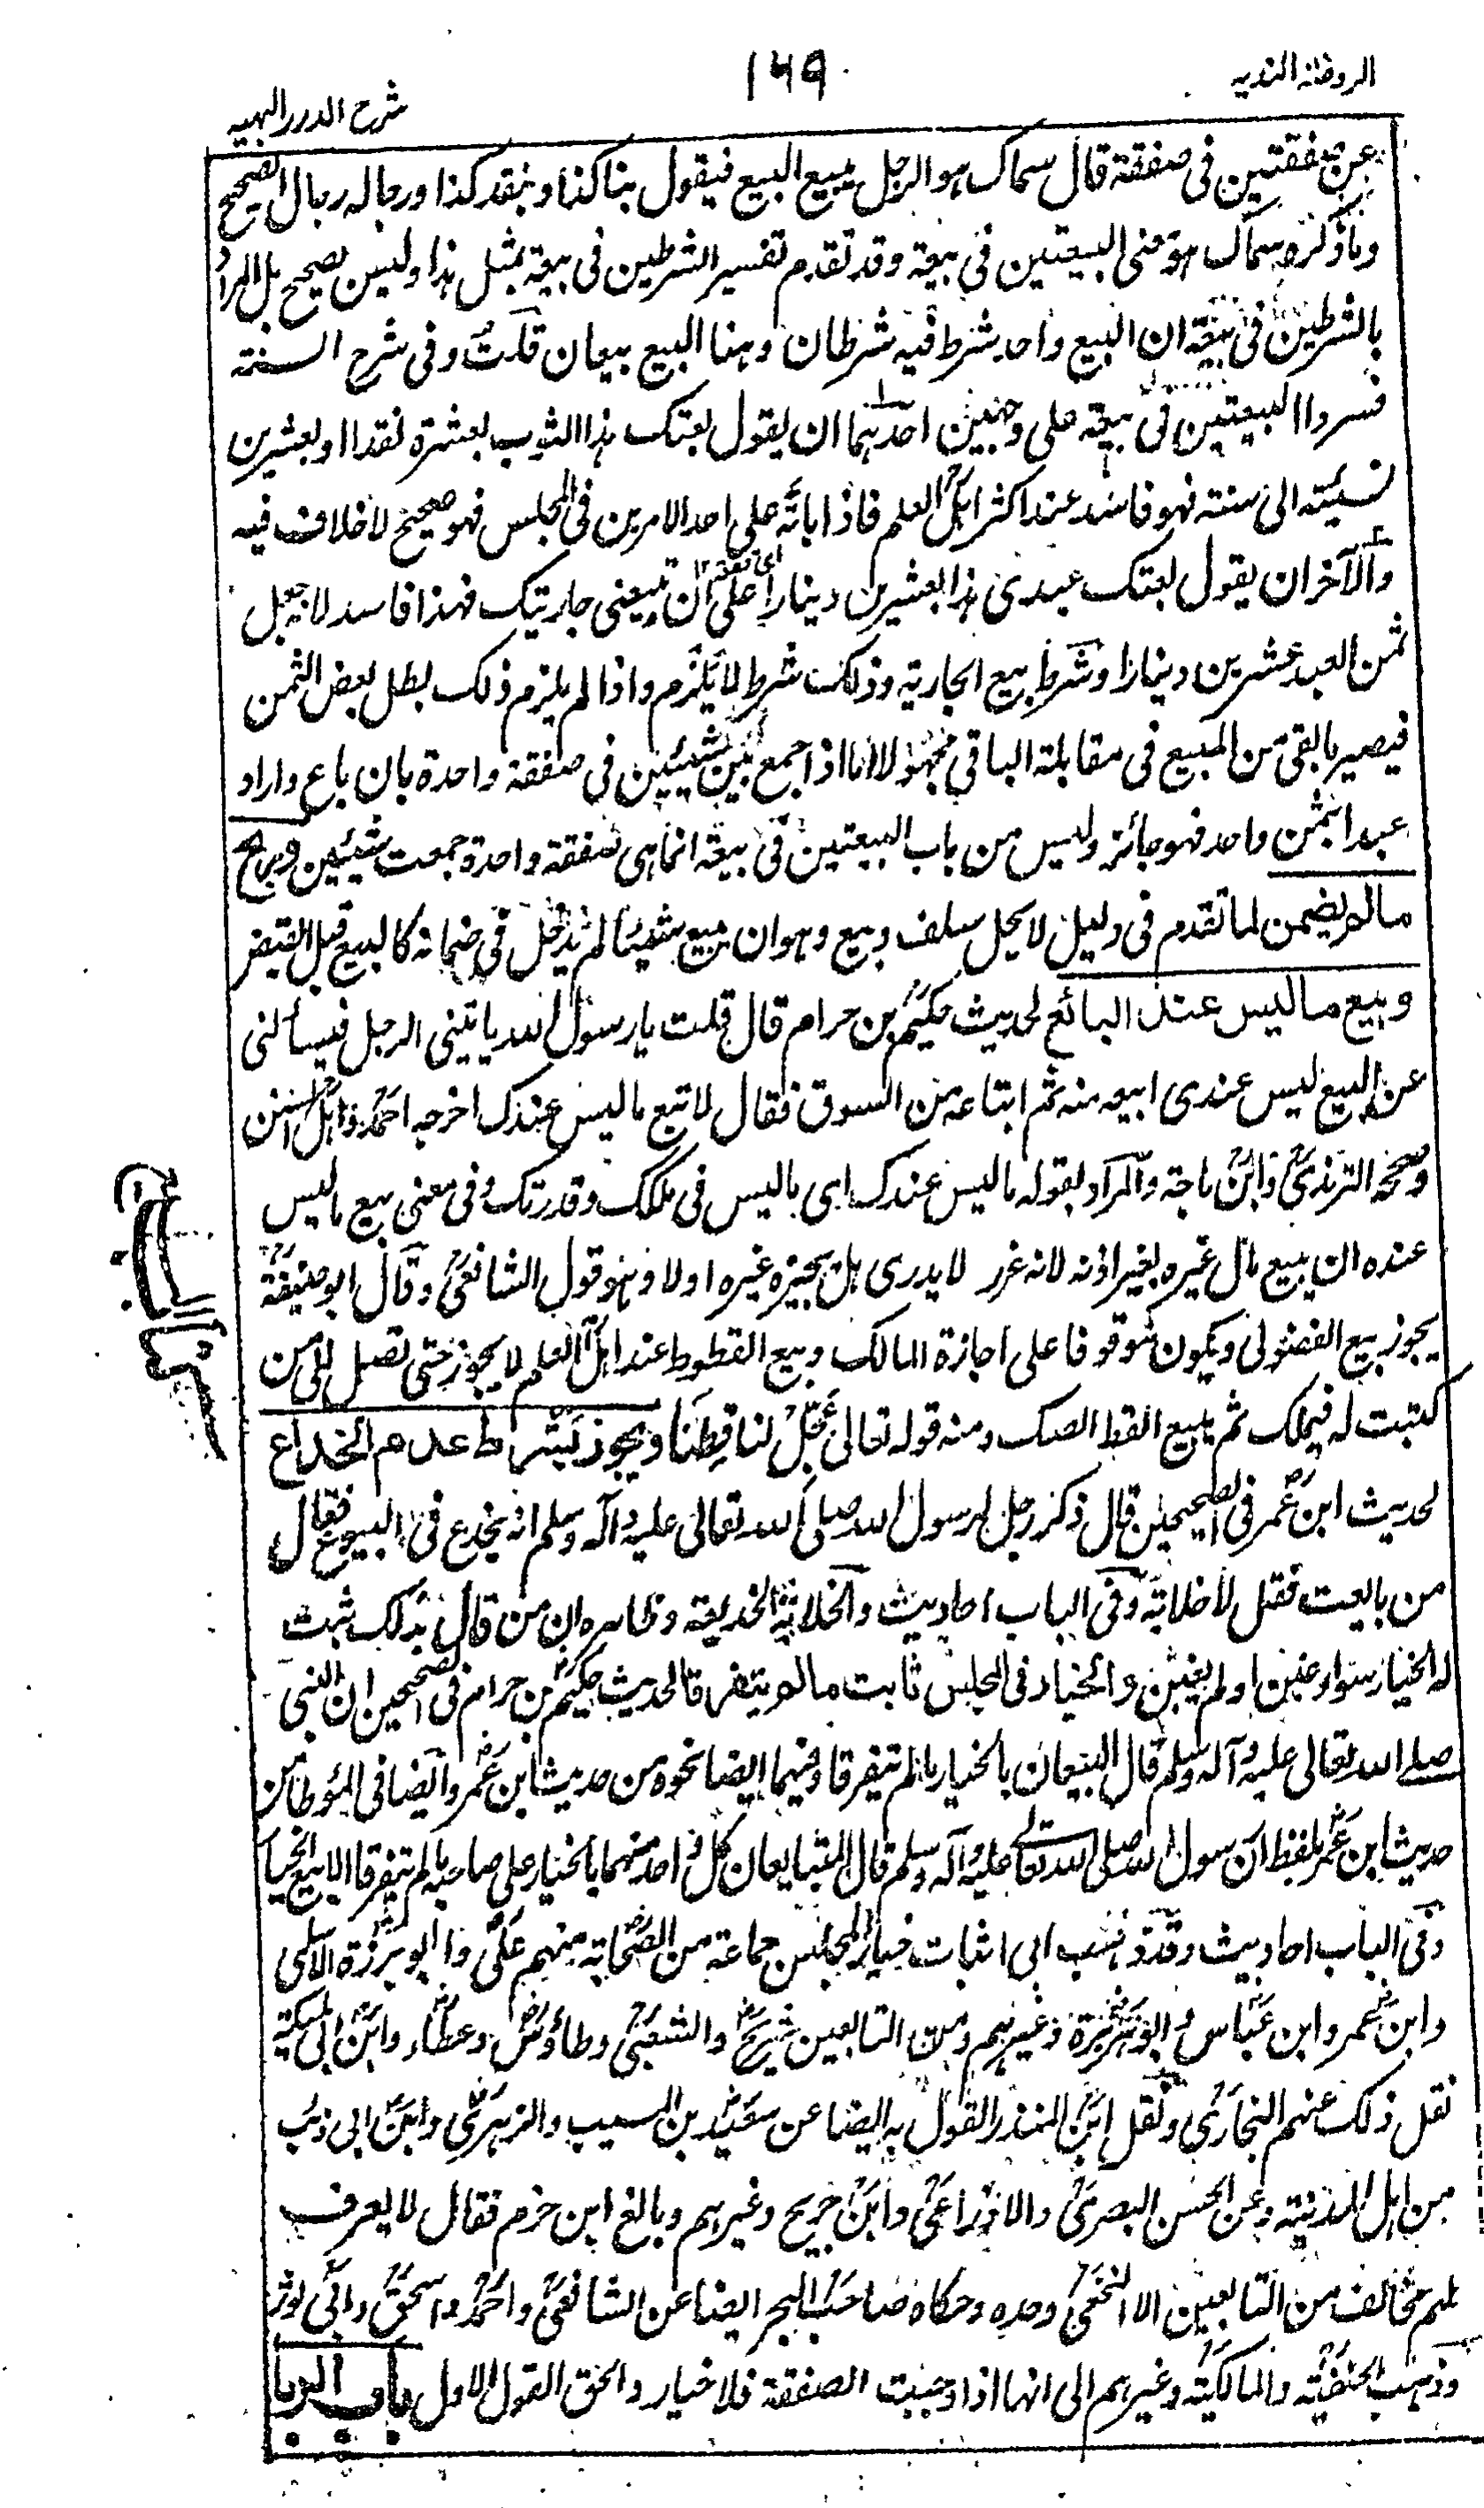 الروضة الندیه
١٤٩
شرح الدرر البهیه
عن صفقتین فی صفقة قال سماک هو الرجل یبیع البیع فیقول بنسا کذا وبنقد کذا ورجاله رجال الصحیح
وما ذکره سماک هو معنی البیعتین فی بیعة وقد تقدم تفسیر الشرطین فی بیعة بمثل هذا ولیس بصحیح بل المراد
بالشرطین فی بیعة ان البیع واحد شرط فیه شرطان وهنا البیع بیعان قلت وفی شرح السنة
فسروا البیعتین فی بیعة علی وجهین احدهما ان یقول بعتک هذا الثوب بعشرة نقدا او بعشرین
نسیئة الی سنة فهو فاسد عند اکثر اهل العلم فاذا باته علی احد الامرین فی المجلس فهو صحیح لا خلاف فیه
والآخر ان یقول بعتک عبدی هذا بعشرین دینارا علی ان تبیعنی جاریتک فهذا فاسد لانه جعل
ثمن العبد عشرین دینارا وشرط بیع الجاریة وذلک شرط لا یلزم واذا لم یلزم ذلک بطل بعض الثمن
فیصیر ما بقی من المبیع فی مقابلة الباقی مجهولا اما اذا جمع بین شیئین فی صفقة واحدة بان باع دارا و
عبدا بثمن واحد فهو جائز ولیس من باب البیعتین فی بیعة انما هی صفقة واحدة جمعت شیئین وربح
مالم یضمن لما تقدم فی دلیل لا یحل سلف وبیع وهو ان یبیع شیئا لم یدخل فی ضمانه کالبیع قبل القبض
وبیع ما لیس عند البائع لحدیث حکیم بن حزام قال قلت یا رسول الله یاتینی الرجل فیسألنی
عن البیع لیس عندی ابیعه منه ثم ابتاعه من السوق فقال لا تبع ما لیس عندک اخرجه احمد واهل السنن
وصححه الترمذی وابن ماجة والمراد بقوله ما لیس عندک ای ما لیس فی ملکک وقدرتک وفی معنی بیع ما لیس
عنده ان یبیع مال غیره بغیر اذنه لانه غرر لا یدری هل یجیزه غیره اولا وهو قول الشافعی وقال ابو حنیفة
یجوز بیع الفضولی ویکون موقوفا علی اجازة المالک وبیع القطوط عند اهل العلم لا یجوز حتی تصل الی من
کتبت له فیملک ثم یبیع القط الصک ومنه قوله تعالی عجل لنا قطنا ویجوز بشرط عدم الخداع
لحدیث ابن عمر فی الصحیحین قال ذکر رجل لرسول الله صلی الله تعالی علیه وآله وسلم انه یخدع فی البیوع فقال
من بایعت فقل لا خلابة وفی الباب احادیث والخلابة الخدیعة وظاهره ان من قال بذلک ثبت
له الخیار سواء غبن او لم یغبن والخیار فی المجلس ثابت مالم یتفرقا لحدیث حکیم بن حزام فی الصحیحین ان النبی
صلی الله تعالی علیه وآله وسلم قال البیعان بالخیار ما لم یتفرقا وفیهما ایضا نحوه من حدیث ابن عمر وایضا فی الموطا من
حدیث ابن عمر بلفظ ان رسول الله صلی الله تعالی علیه وآله وسلم قال المتبایعان کل واحد منهما بالخیار علی صاحبه ما لم یتفرقا الا بیع الخیار
وفی الباب احادیث وقد ذهب الی اثبات خیار المجلس جماعة من الصحابة منهم علی وابو برزة الاسلمی
وابن عمر وابن عباس وابو هریرة وغیرهم ومن التابعین شریح والشعبی وطاؤس وعطاء وابن ابی ملیکة
نقل ذلک عنهم البخاری ونقل ابن المنذر القول به ایضا عن سعید بن المسیب والزهری وابن ابی ذئب
من اهل المدینة وعن الحسن البصری والاوزاعی وابن جریج وغیرهم وبالغ ابن حزم فقال لا یعرف
لهم مخالف من التابعین الا النخعی وحده وحکاه صاحب البحر ایضا عن الشافعی واحمد واسحق وابی ثور
وذهب الحنفیة والمالکیة وغیرهم الی انها اذا وجبت الصفقة فلا خیار والحق القول الاول باب الربا